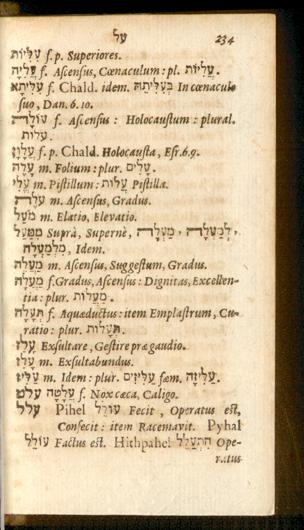 על 234
עליות f. p. Superiores.
עליה f. Ascensus, Cœnaculum: pl. עליות.
עליתא f. Chald. idem. בעליתה In cœnaculo
suo, Dan. 6. 10.
עולה f. Ascensus: Holocaustum: plural.
עלות
עלון f. p. Chald. Holocausta, Esr. 6. 9.
עלה m. Folium: plur. עלים.
עלי m. Pistillum: עלות Pistilla.
m. Ascensus, Gradus.
מעל m. Elatio, Elevatio.
ממעל Suprà, Supernè, מעלה, למעלה,
מלמעלה, Idem.
מעלה m. Ascensus, Suggestum, Gradus.
מעלה f. Gradus, Ascensus: Dignitas, Excellen-
tia: plur. מעלות.
תעלה f. Aquæductus: item Emplastrum, Cu-
ratio: plur. תעלות.
עלז Exsultare, Gestire præ gaudio.
עלז m. Exsultabundus.
עליז m. Idem: plur. עליזים fæm. עליזה.
עלט עלטה f. Nox cæca, Caligo.
עלל Pihel עולל Fecit, Operatus est,
Confecit: item Racemavit. Pyhal
עולל Factus est. Hithpahel התעלל Ope-
ratus